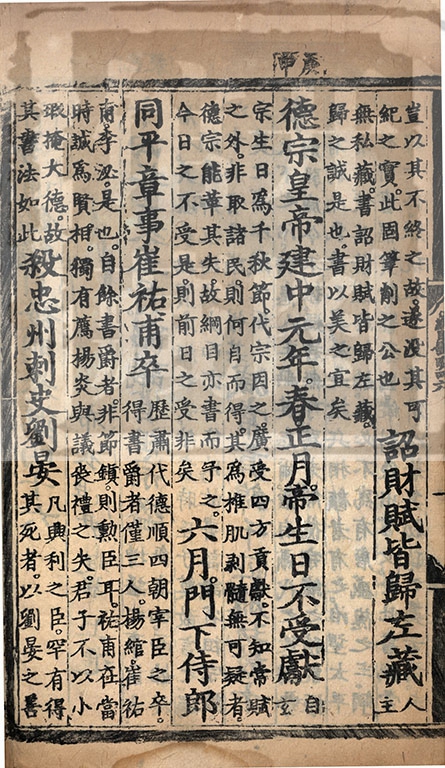 庚申
豈以其不終之故。遂沒其可
紀之實。此固筆削之公也
詔財賦皆歸左藏
人
主
無私藏。書詔財賦皆歸左藏。
歸之誠是也。書以美之宜矣
德宗皇帝建中元年。春正月。帝生日不受獻
自
玄
宗生日爲千秋節。代宗因之。廣受四方貢獻。不知常賦
之外。非取諸民。則何自而得。其爲椎肌剥髓無可疑者。
德宗能革其失。故綱目亦書而予之。
今日之不受是。則前日之受非矣
六月。門下侍郎
同平章事崔祐甫卒
歷肅代德順四朝宰臣之卒。
得書爵者僅三人。楊綰。崔祐
甫李泌。是也。自餘書爵者。非節鎮。則勳臣耳。祐甫在當
時誠爲賢相。獨有薦楊炎與議喪禮之失。君子不以小
瑕掩大德。故
其書法如此
殺忠州刺史劉晏
凡興利之臣。罕有得
其死者。以劉晏之善